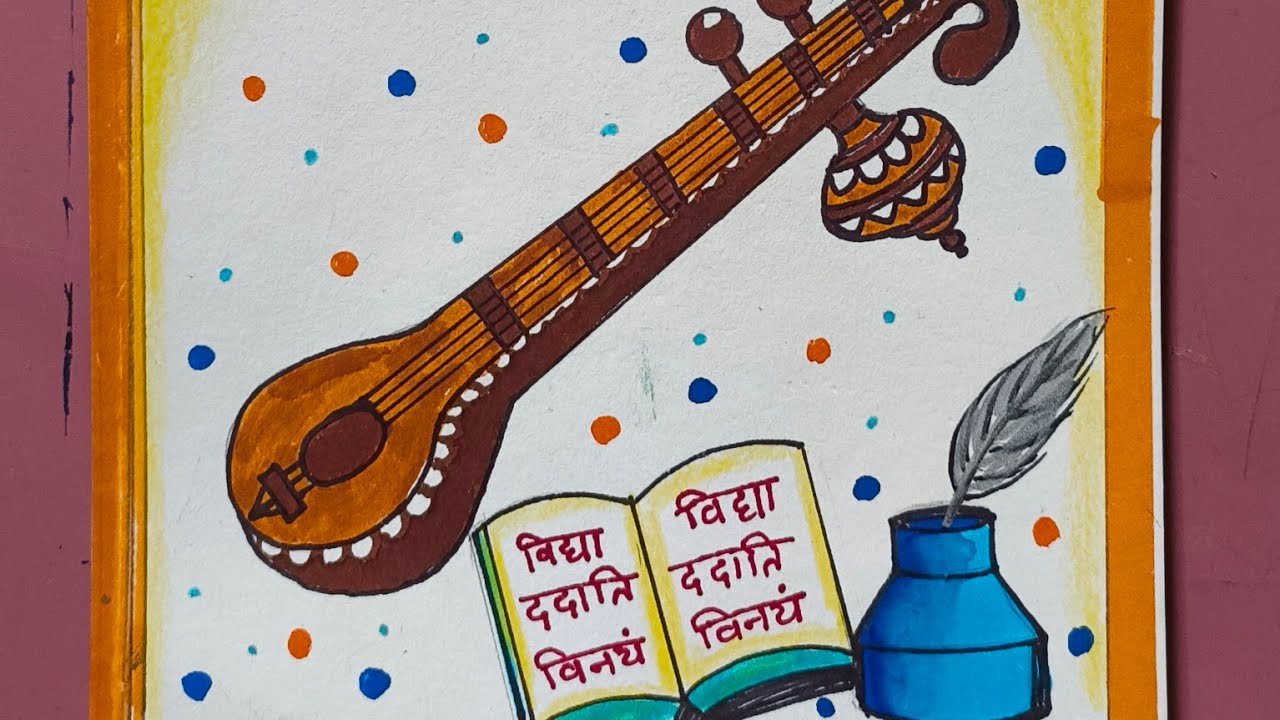 विद्या
ददाति
विनयं
विद्या
ददाति
विनयं